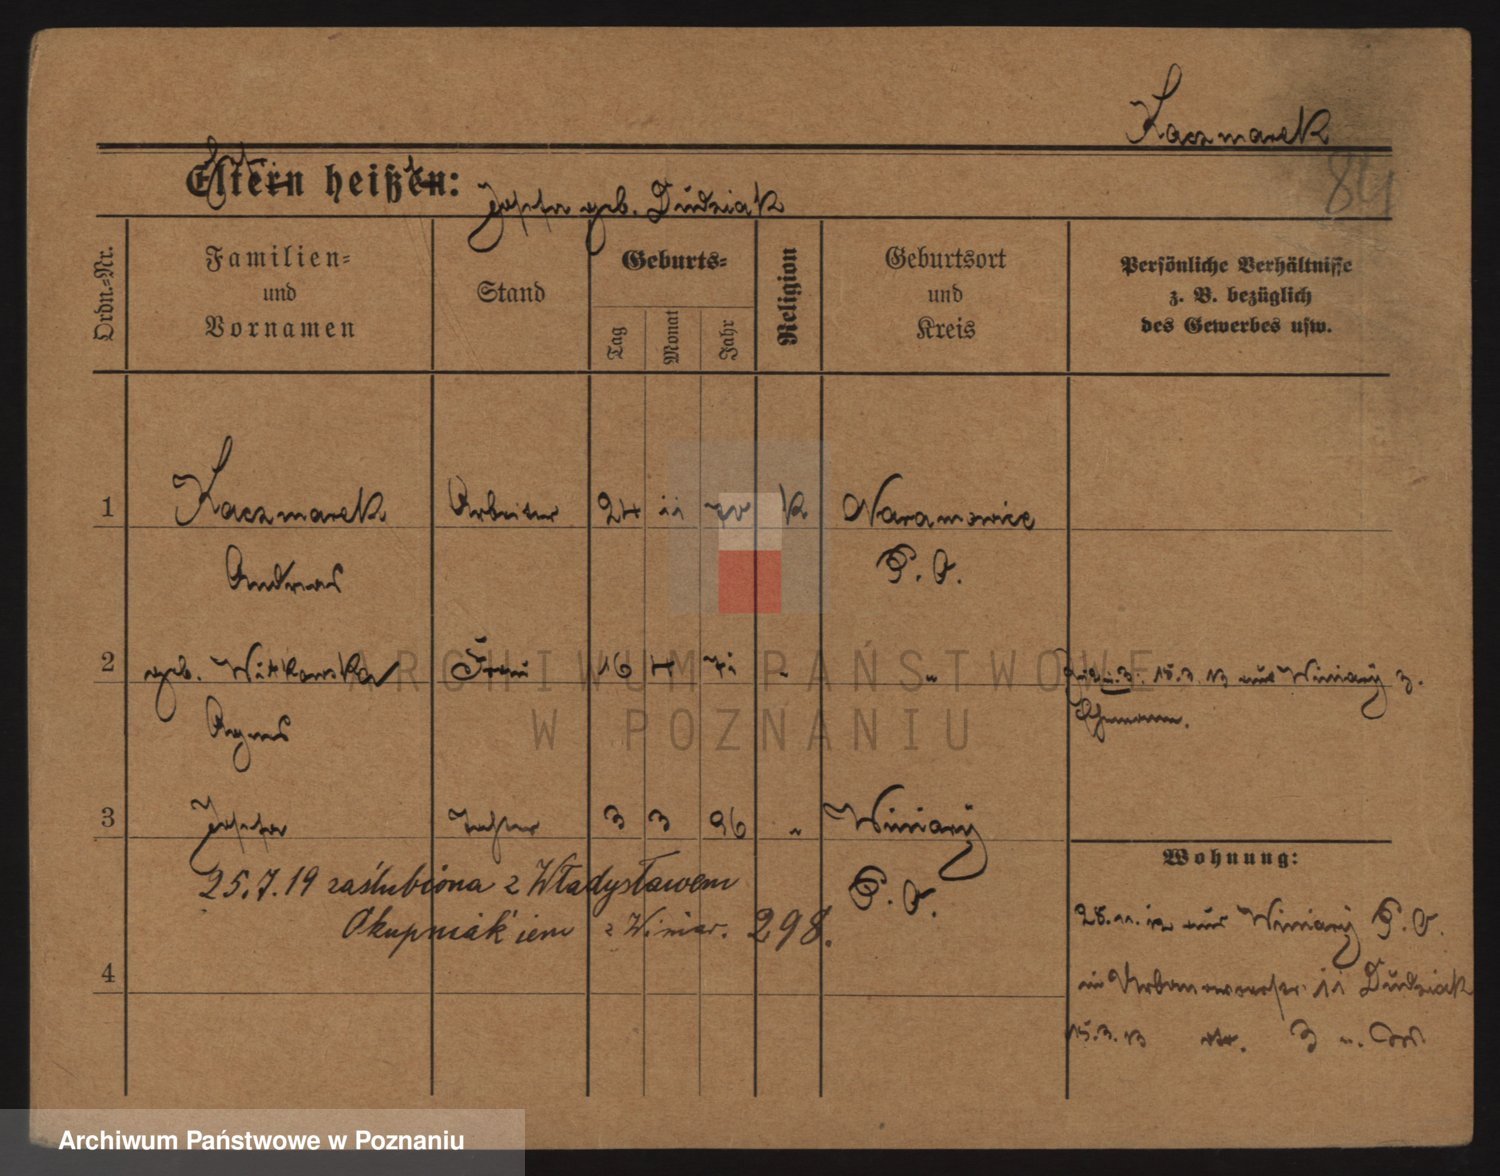 Kaczmarek
84
Eltern heißen:
Josefa geb. Dudziak
Ordn.-Nr.
Familien-
und
Vornamen
Stand
Geburts-
Tag
Monat
Jahr
Religion
Geburtsort
und
Kreis
Persönliche Verhältnisse
z. B. bezüglich
des Gewerbes usw.
1 Kaczmarek Arbeiter 24 11 70 K Naramowice
Andreas P. O.
2 geb. Witkowska Frau 16 4 71 " " 15.3.13 aus Winiary z.
Agnes Ehemann.
3 Josefa Tochter 3 3 96 " Winiary
P. O.
25.7.19 zaślubiona z Władysławem
Okupniak'iem z Winiar. 298.
4
Wohnung:
28.11.12 aus Winiary P. O.
in 11 Dudziak
15.3.13 3
ARCHIWUM PAŃSTWOWE
W POZNANIU
Archiwum Państwowe w Poznaniu